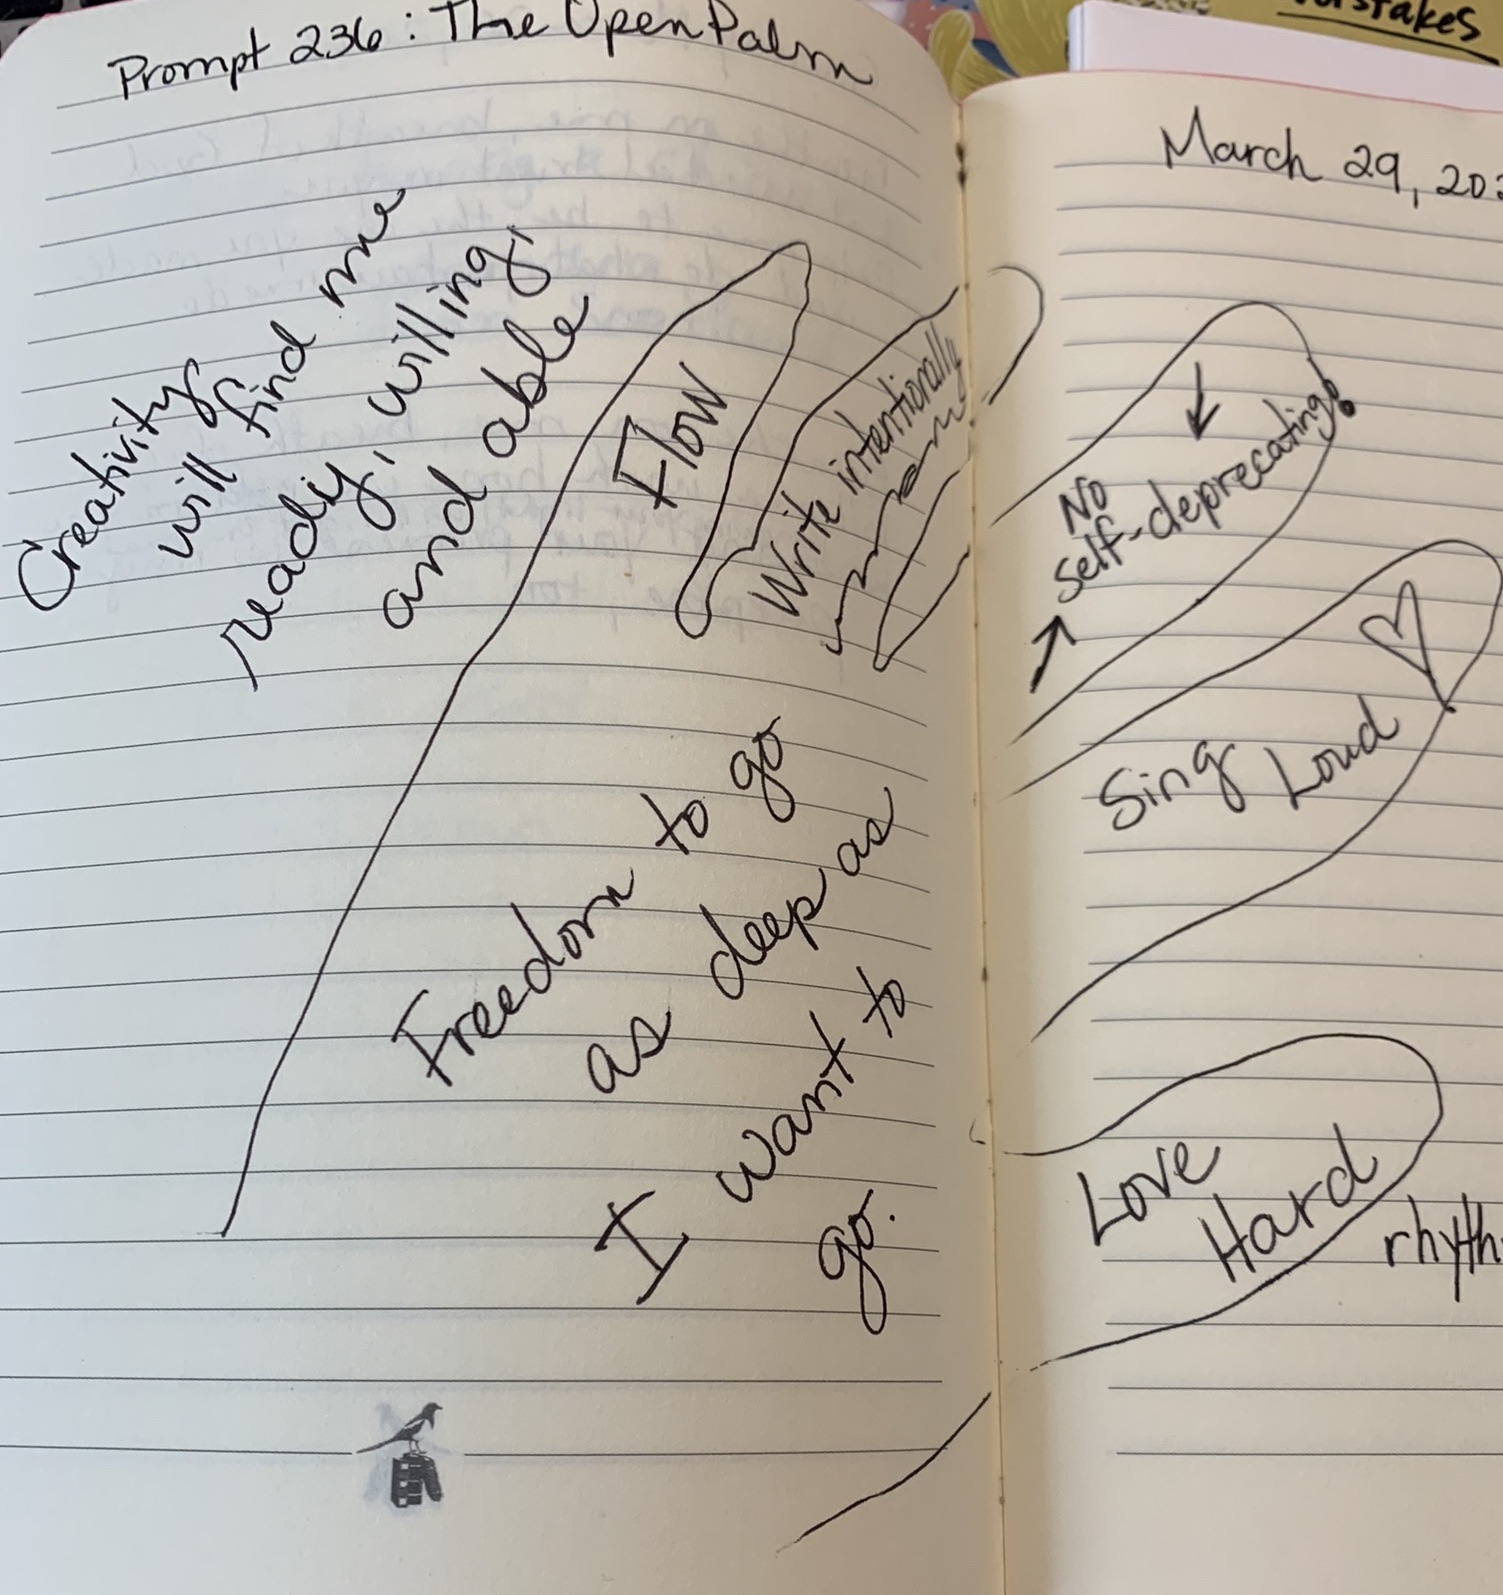 Prompt 236: The Open Palm
Creativity
will find me
ready, willing,
and able
Flow
Write intentionally
Freedom to go
as deep as
I want to
go.
March 29, 202
No
self-deprecating!
Sing Loud
Love
Hard
rhyth